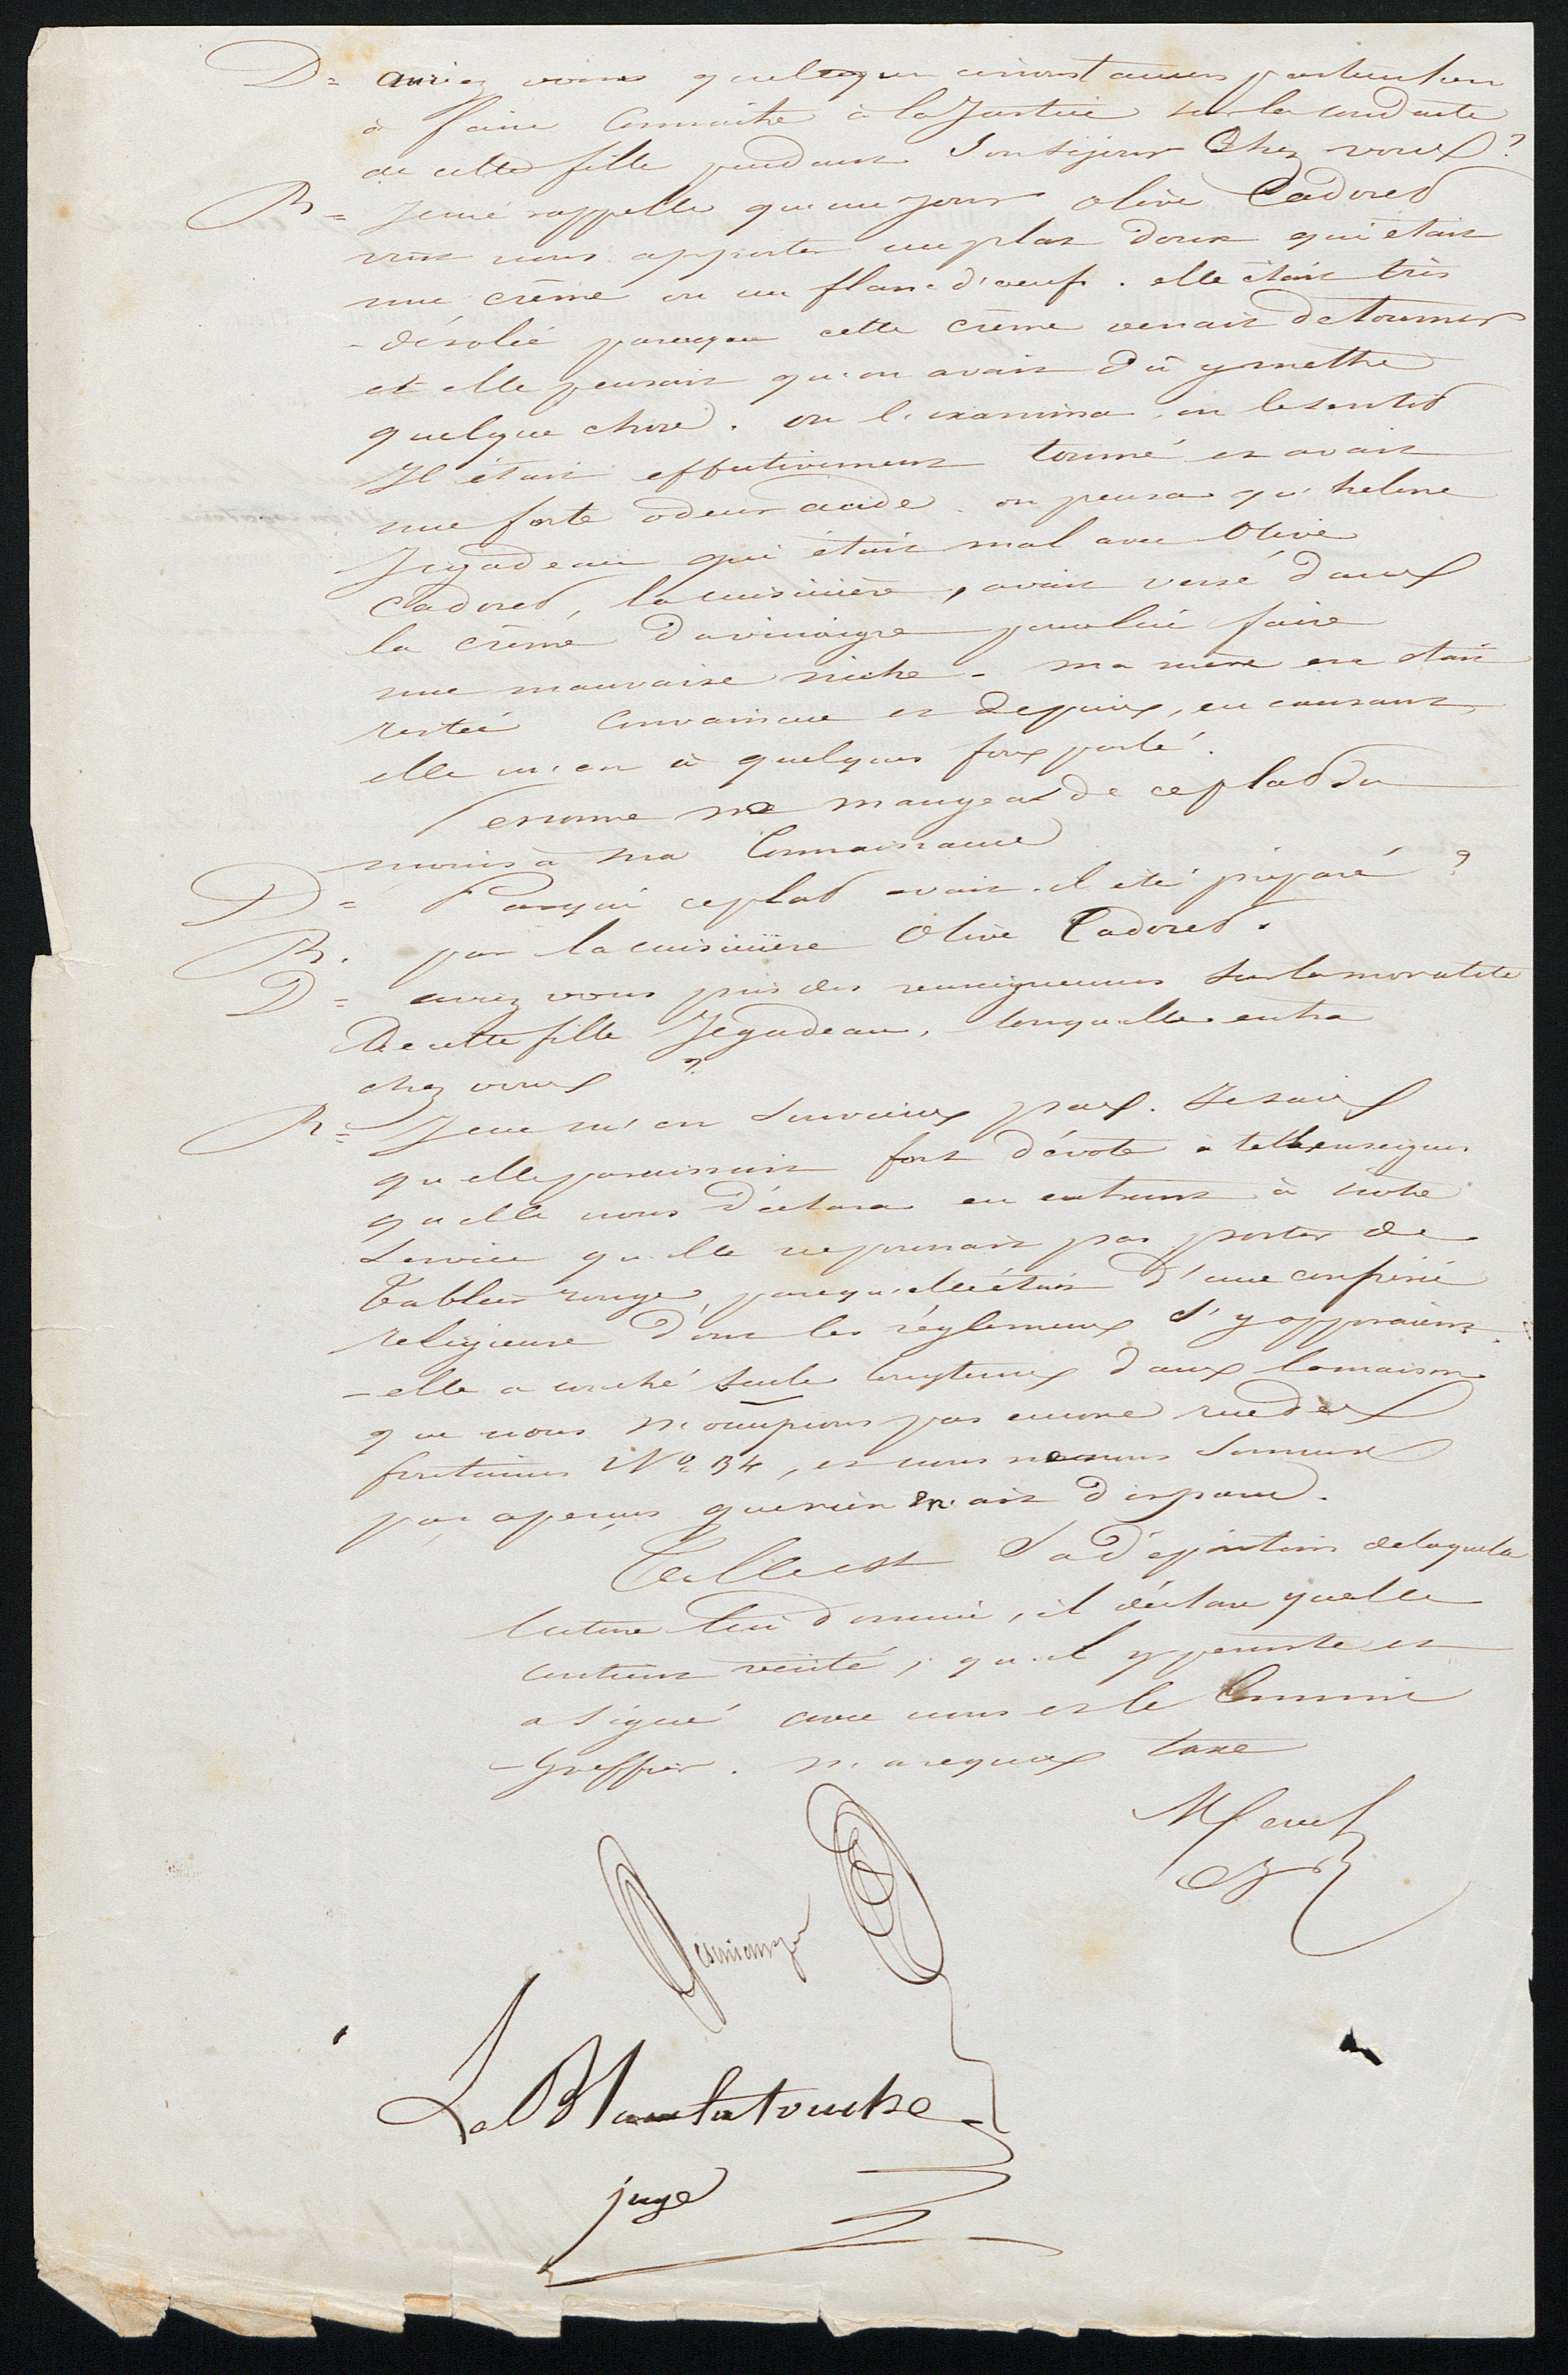 D = auriez vous quelque circonstances particulieres
à faire Connaitre à la Justice sur la conduite
de cette fille pendant Son séjour Chez vous ?
R = Je me rappelle qu'un jour olive Cadoret
vint nous apporter un plat doux qui était
une crème ou un flan d'oeufs . elle était très
- désolée parceque cette crème venait de tourner
et elle pensait qu'on avait dû y mettre
quelque chose . on l'examina, on le sentit
Il était effectivement tourné et avait
une forte odeur acide . on pensa qu'helene
Jegadeau qui était mal avec Olive
Cadoret, la cuisinière, avait versé dans
la crème du vinaigre pour lui faire
une mauvaise niche - ma mère en était
restée Convaincue et depuis, en causant,
elle m'en a quelques fois parlé .
Personne ne mangea de ce plat du
moins à ma Connaissance
D = Par qui ce plat avait-il été préparé ?
R . par la cuisinière Olive Cadoret .
D = aviez vous pris des renseignemens sur la moralité
De cette fille Jegadeau, lorsqu'elle entra
chez vous ?
R = Je ne m'en Souviens pas . Je sais
qu'elle paraissait fort dévote à telle enseignes
qu'elle nous déclara en entrant à notre
Service qu'elle ne pouvait pas porter de
Tablier rouge, parcequ'elle était d'une confrérie
religieuse dont les réglemens S'y opposaient .
- elle a couché seule longtems dans la maison
que nous n'occupions pas encore rue des
fontaines N° 34, et nous ne nous sommes
pas aperçus que rien n'ait disparu .
Telle est Sa déposition de laquelle
lecture lui donnée, il déclare qu'elle
contient vérité, qu'il y persiste et
a signé avec nous et le Commis
- Greffier . n'a requis taxe

Le Blanc Latouche
juge